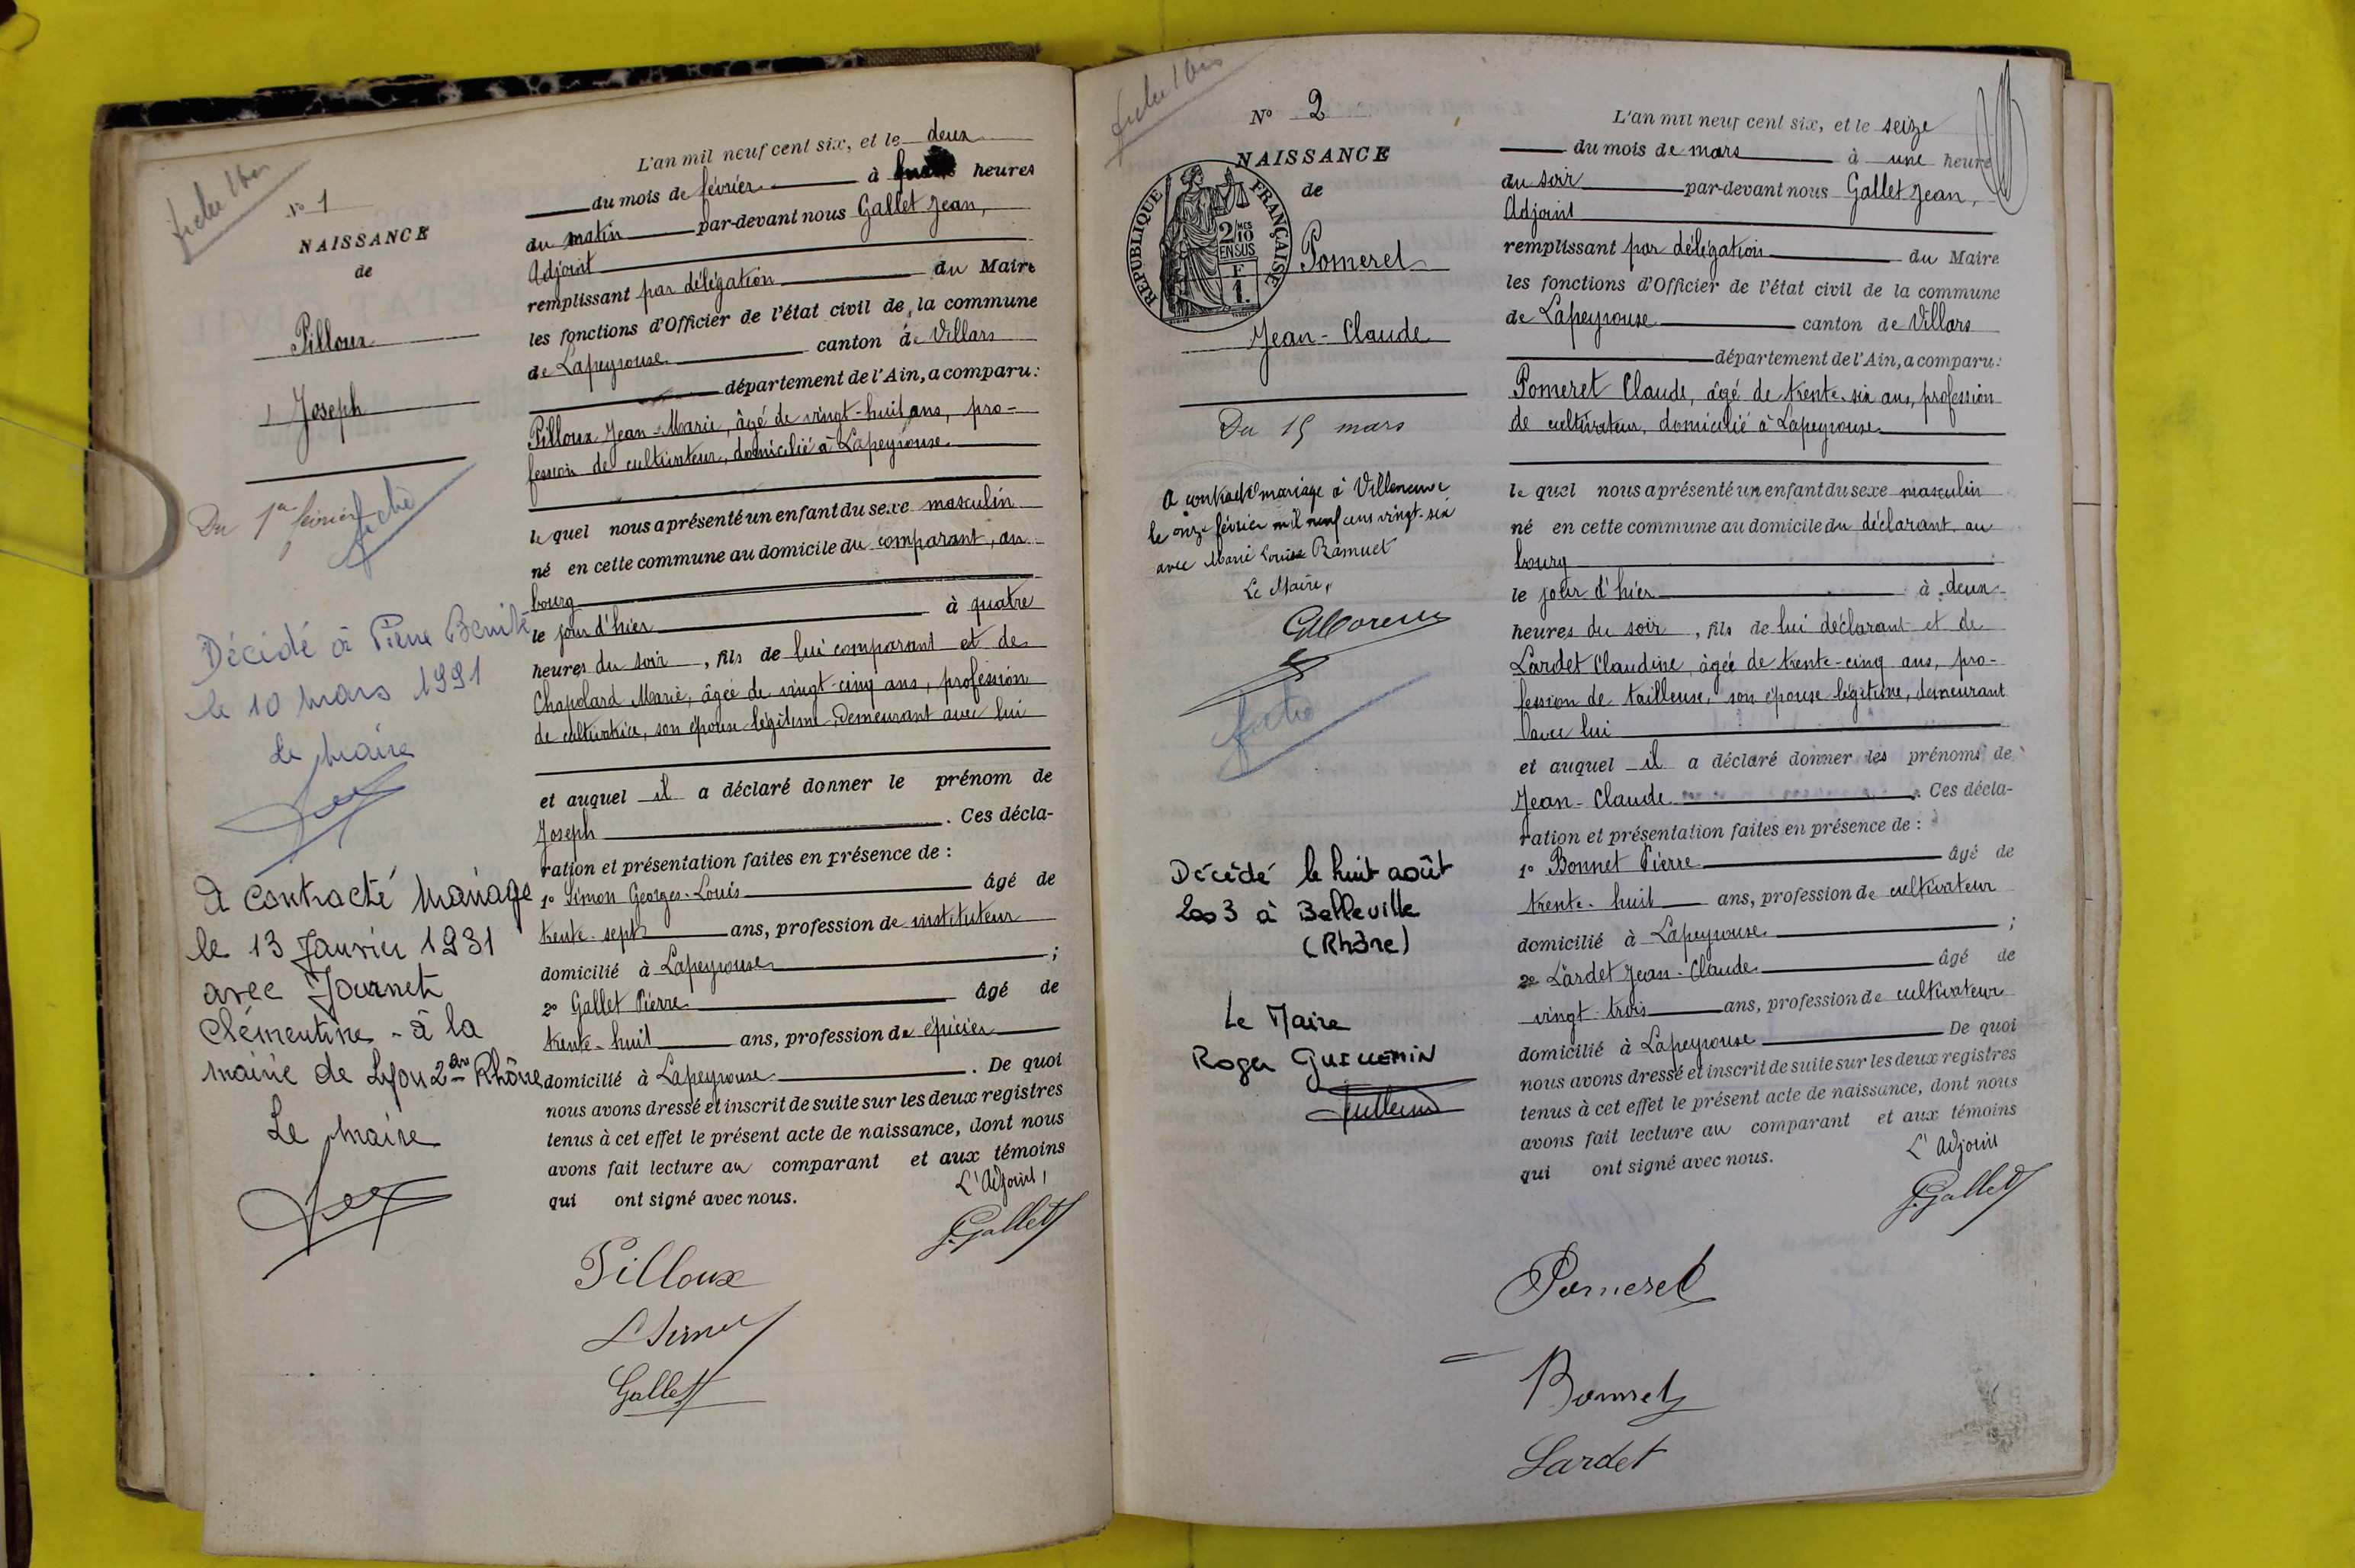 fiche 1 bis
N° 1
NAISSANCE
de
Pilloux
Joseph
Du 1er février
fiche
Décédé à Pierre Bénite
le 10 mars 1991
le maire
A contracté mariage
le 13 Janvier 1931
avec Journet
Clémentine - à la
mairie de Lyon 2ar Rhône
Le maire
L'an mil neuf cent six, et le deux
du mois de février à heures
du matin par-devant nous Gallet Jean,
Adjoint
remplissant par délégation du Maire
les fonctions d'Officier de l'état civil de la commune
de Lapeyrouse canton de Villars
département de l'Ain, a comparu :
Pilloux Jean-Marie, âgé de vingt-huit ans, pro-
fession de cultivateur, domicilié à Lapeyrouse
le quel nous a présenté un enfant du sexe masculin
né en cette commune au domicile du comparant, au
bourg
le jour d'hier à quatre
heures du soir, fils de lui comparant et de
Chapolard Marie, âgée de vingt-cinq ans, profession
de cultivatrice, son épouse légitime, demeurant avec lui
et auquel il a déclaré donner le prénom de
Joseph . Ces décla-
ration et présentation faites en présence de :
1° Simon Georges-Louis âgé de
trente-sept ans, profession de instituteur
domicilié à Lapeyrouse ;
2° Gallet Pierre âgé de
trente-huit ans, profession de épicier
domicilié à Lapeyrouse . De quoi
nous avons dressé et inscrit de suite sur les deux registres
tenus à cet effet le présent acte de naissance, dont nous
avons fait lecture au comparant et aux témoins
qui ont signé avec nous.
L'Adjoint,
J. Gallet
Pilloux
L Simon
Gallet
fiche 1 bis
N° 2
NAISSANCE
de
RÉPUBLIQUE FRANÇAISE
2/10 MES
EN SUS
F
1.
Pomeret
Jean-Claude
Du 15 mars
A contracté mariage à Villeneuve
le onze février mil neuf cent vingt-six
avec Marie Louise Ramuet
Le Maire,
fiche
Décédé le huit août
2003 à Belleville
(Rhône)
Le Maire
Roger GUILLEMIN
L'an mil neuf cent six, et le seize
du mois de mars à une heure
du soir par-devant nous Gallet Jean,
Adjoint
remplissant par délégation du Maire
les fonctions d'Officier de l'état civil de la commune
de Lapeyrouse canton de Villars
département de l'Ain, a comparu :
Pomeret Claude, âgé de trente-six ans, profession
de cultivateur, domicilié à Lapeyrouse
le quel nous a présenté un enfant du sexe masculin
né en cette commune au domicile du déclarant au
bourg
le jour d'hier à deux
heures du soir, fils de lui déclarant et de
Lardet Claudine, âgée de trente-cinq ans, pro-
fession de tailleuse, son épouse légitime, demeurant
avec lui
et auquel il a déclaré donner les prénoms de
Jean-Claude . Ces décla-
ration et présentation faites en présence de :
1° Bonnet Pierre âgé de
trente-huit ans, profession de cultivateur
domicilié à Lapeyrouse ;
2° Lardet Jean-Claude âgé de
vingt-trois ans, profession de cultivateur
domicilié à Lapeyrouse De quoi
nous avons dressé et inscrit de suite sur les deux registres
tenus à cet effet le présent acte de naissance, dont nous
avons fait lecture au comparant et aux témoins
qui ont signé avec nous.
L'Adjoint
J. Gallet
Pomeret
Bonnet
Lardet